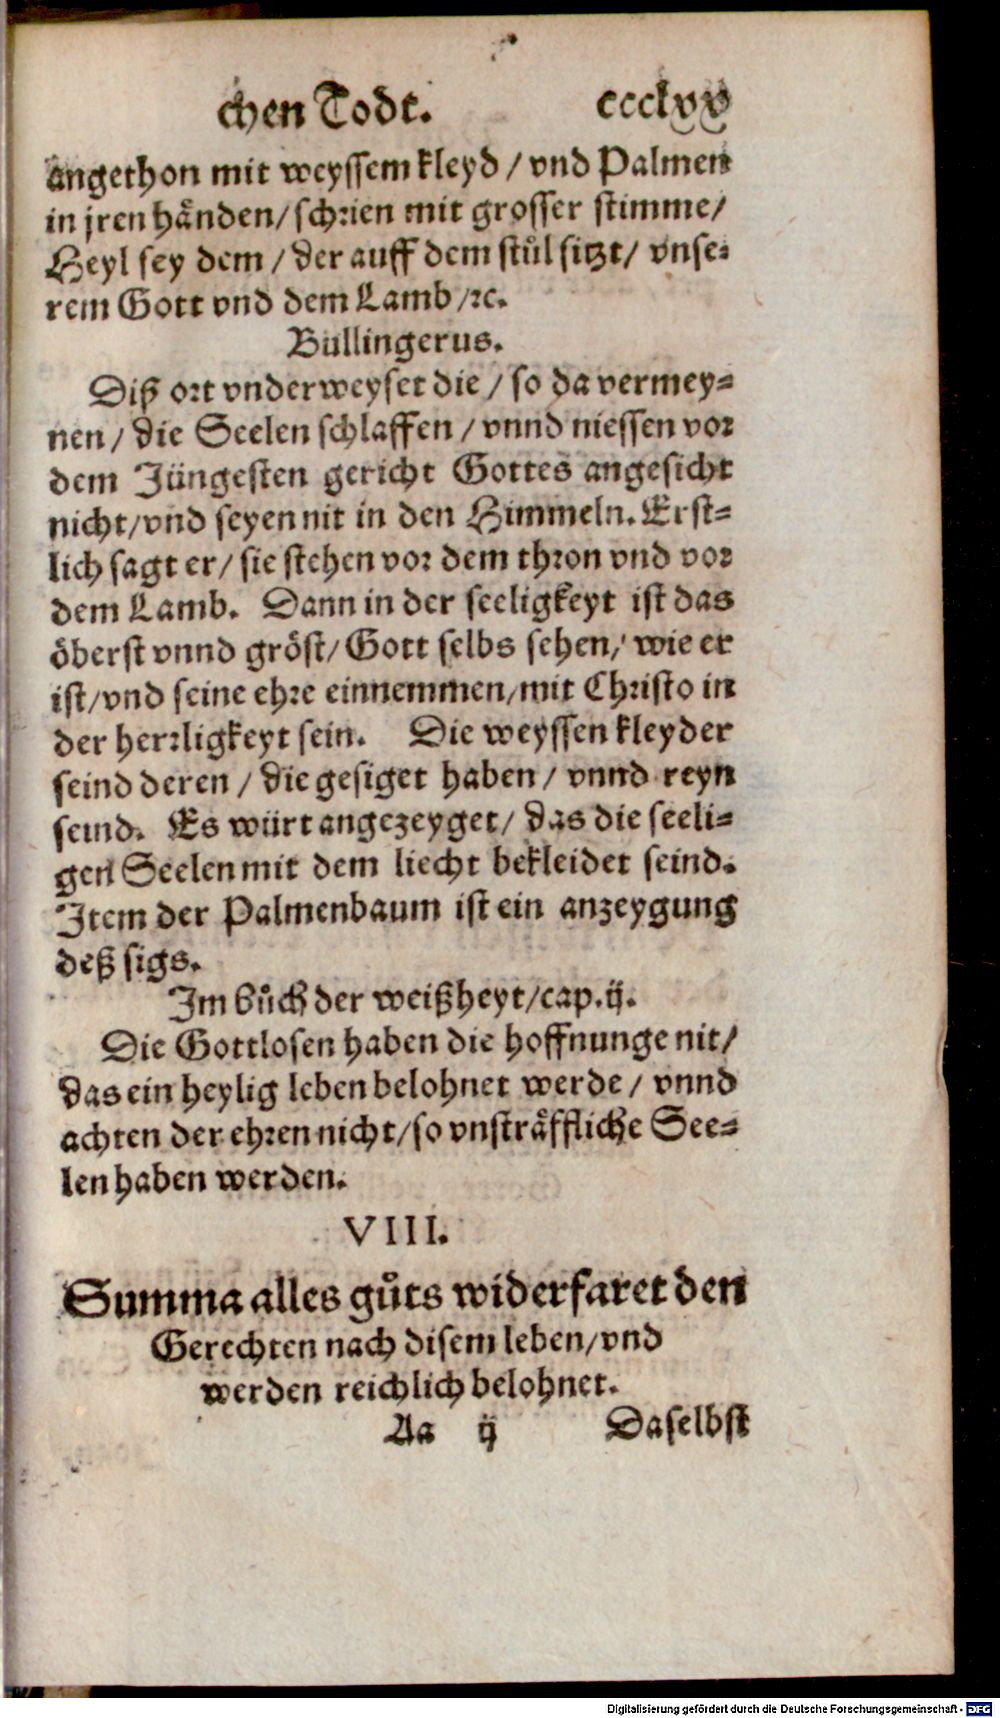 chen Todt. ccclxx
angethon mit weyssem kleyd / vnd Palmen
in jren hånden / schrien mit grosser stimme /
Heyl sey dem / der auff dem stůl sitzt / vnse⸗
rem Gott vnd dem Lamb / ꝛc.
Bullingerus.
Diß ort vnderweyset die / so da vermey⸗
nen / die Seelen schlaffen / vnnd niessen vor
dem Jüngesten gericht Gottes angesicht
nicht / vnd seyen nit in den Himmeln. Erst⸗
lich sagt er / sie stehen vor dem thron vnd vor
dem Lamb. Dann in der seeligkeyt ist das
öberst vnnd gröst / Gott selbs sehen / wie er
ist / vnd seine ehre einnemmen / mit Christo in
der herrligkeyt sein. Die weyssen kleyder
seind deren / die gesiget haben / vnnd reyn
seind. Es würt angezeyget / das die seeli⸗
gen Seelen mit dem liecht bekleidet seind.
Item der Palmenbaum ist ein anzeygung
deß sigs.
Im bůch der weißheyt / cap. ij.
Die Gottlosen haben die hoffnunge nit /
das ein heylig leben belohnet werde / vnnd
achten der ehren nicht / so vnsträffliche See⸗
len haben werden.
VIII.
Summa alles gůts widerfaret den
Gerechten nach disem leben / vnd
werden reichlich belohnet.
Aa ij Daselbst
Digitalisierung gefördert durch die Deutsche Forschungsgemeinschaft - DFG